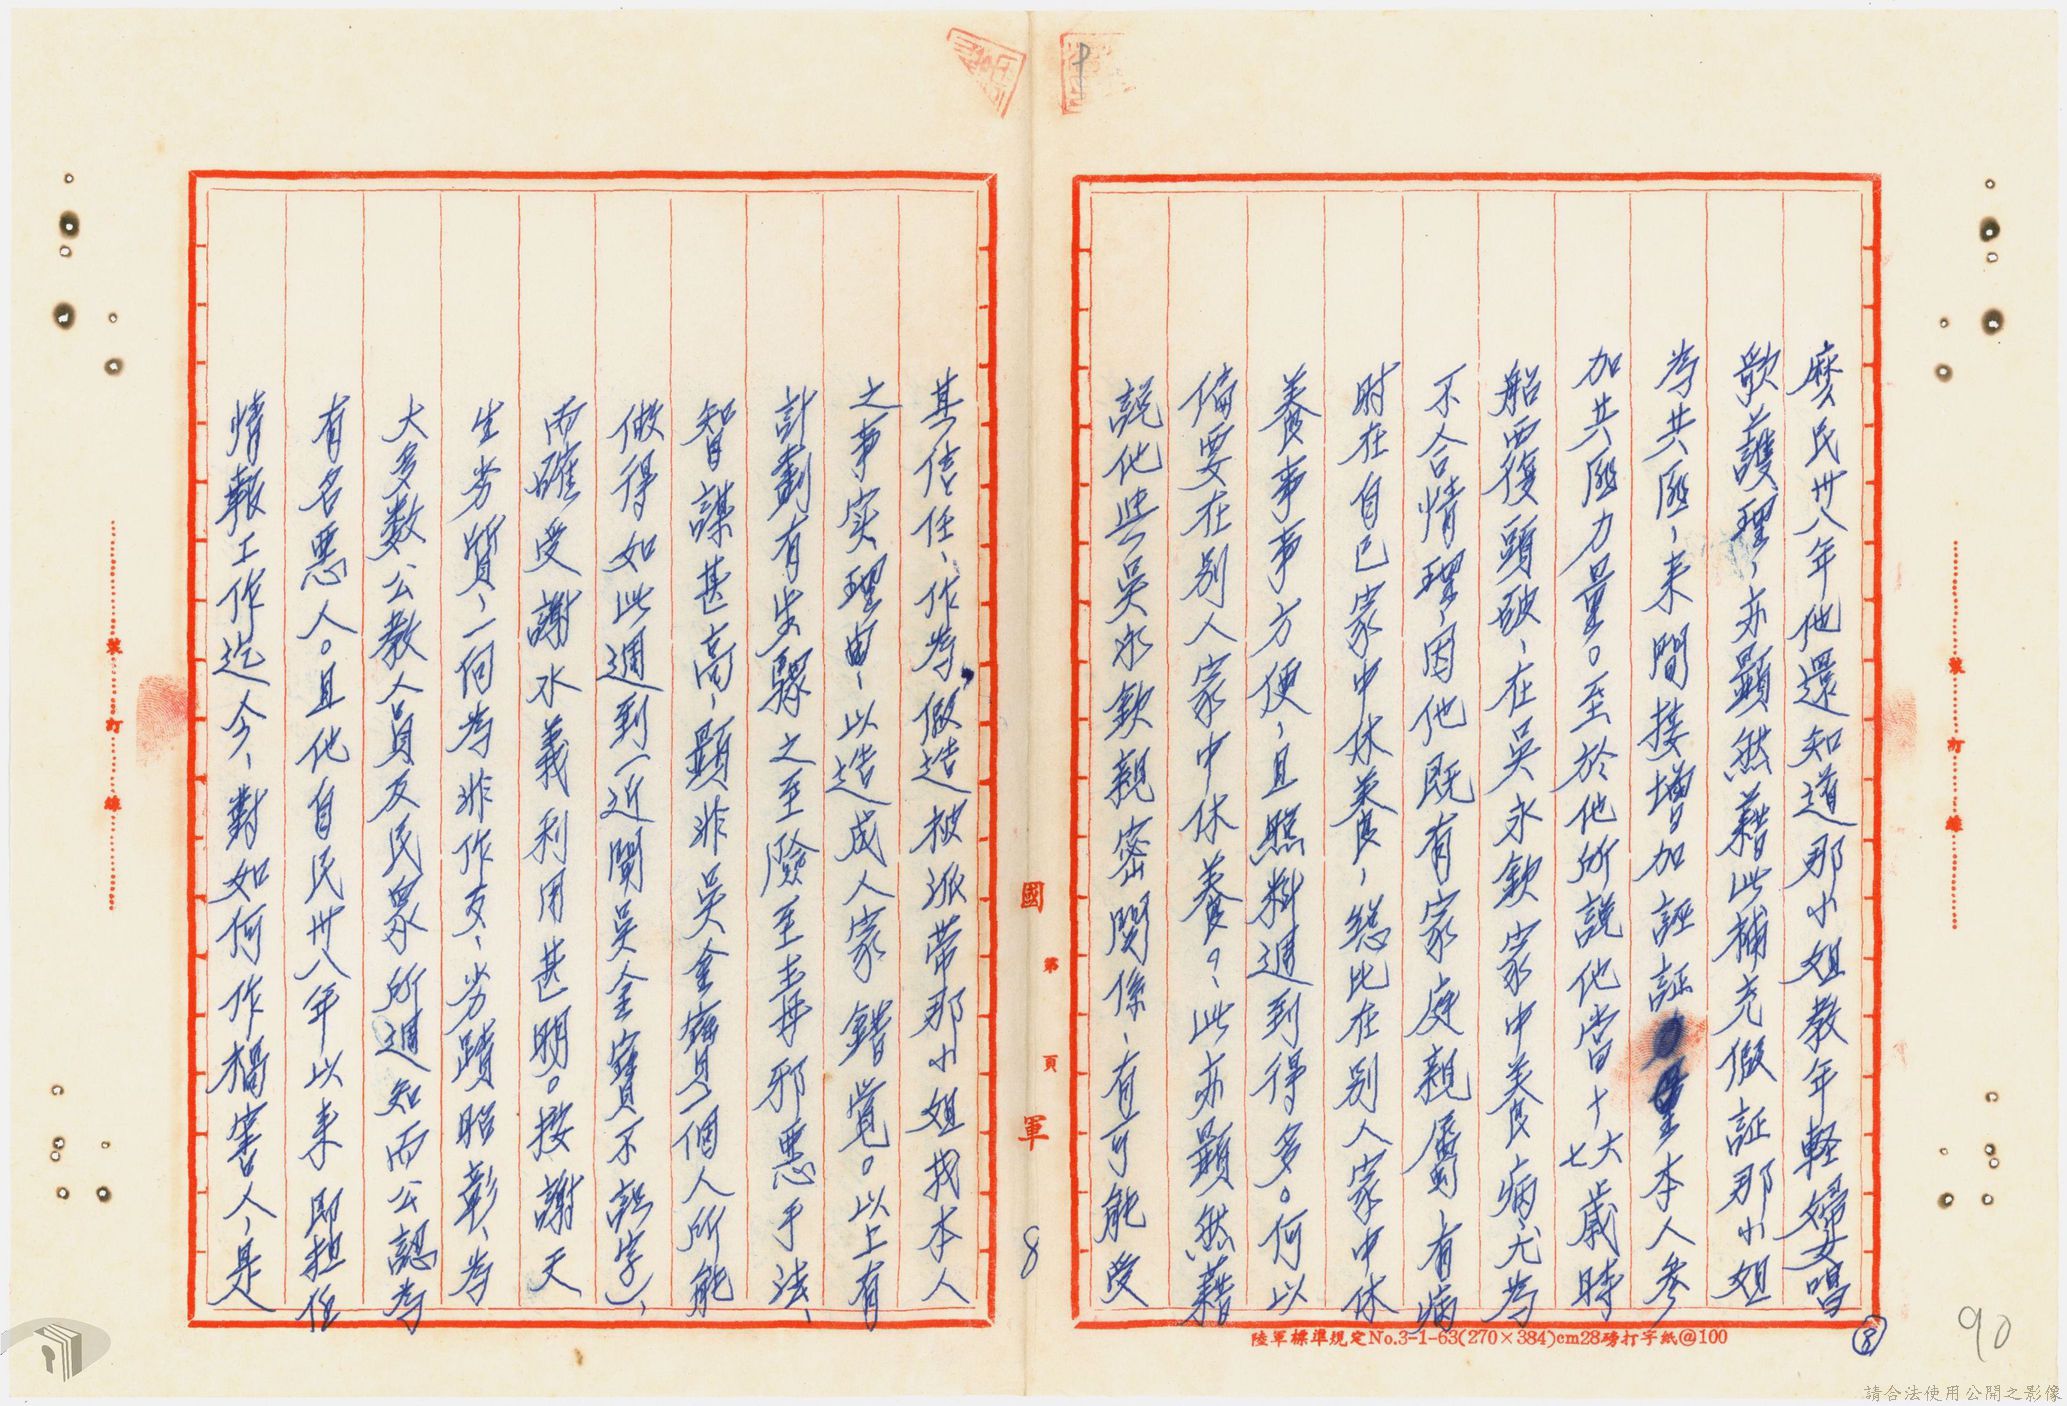 麼民卅八年他還知道那小姐教年輕婦女唱
歌護理,亦顯然藉此補充假証那小姐
為共匪,来間接增加誣証本人參
加共匪力量。至於他所説他當十七大歲時
船西復頭破,在吳永欽家中養病,尤為
不合情理,因他既有家庭親屬,有病
時在自己家中休養,總比在別人家中休
養事事方便,且照料週到得多。何以
偏要在別人家中休養?,此亦顯然藉
說他與吳永欽親密関係,有可能受
其信任,作為假造被派帶那小姐找本人
之事实理由,以造成人家錯覚。以上有
計劃有步驟之至險至毒邪惡手法,
智謀甚高,顯非吳金寶一個人所能
做得如此週到(近聞吳金寶不識字),
而確受謝水義利用甚明。按謝天
生劣質,一向為非作歹,劣蹟昭彰,為
大多数公教人員及民眾所週知而公認為
有名惡人。且他自民卅八年以来即担任
情報工作迄今,對如何作禍害人,是
國 第 頁 軍
8
陸軍標準規定No.3-1-63(270×384)cm28磅打字紙@100
⑧
90
裝 訂 線
裝 訂 線
請合法使用公開之影像